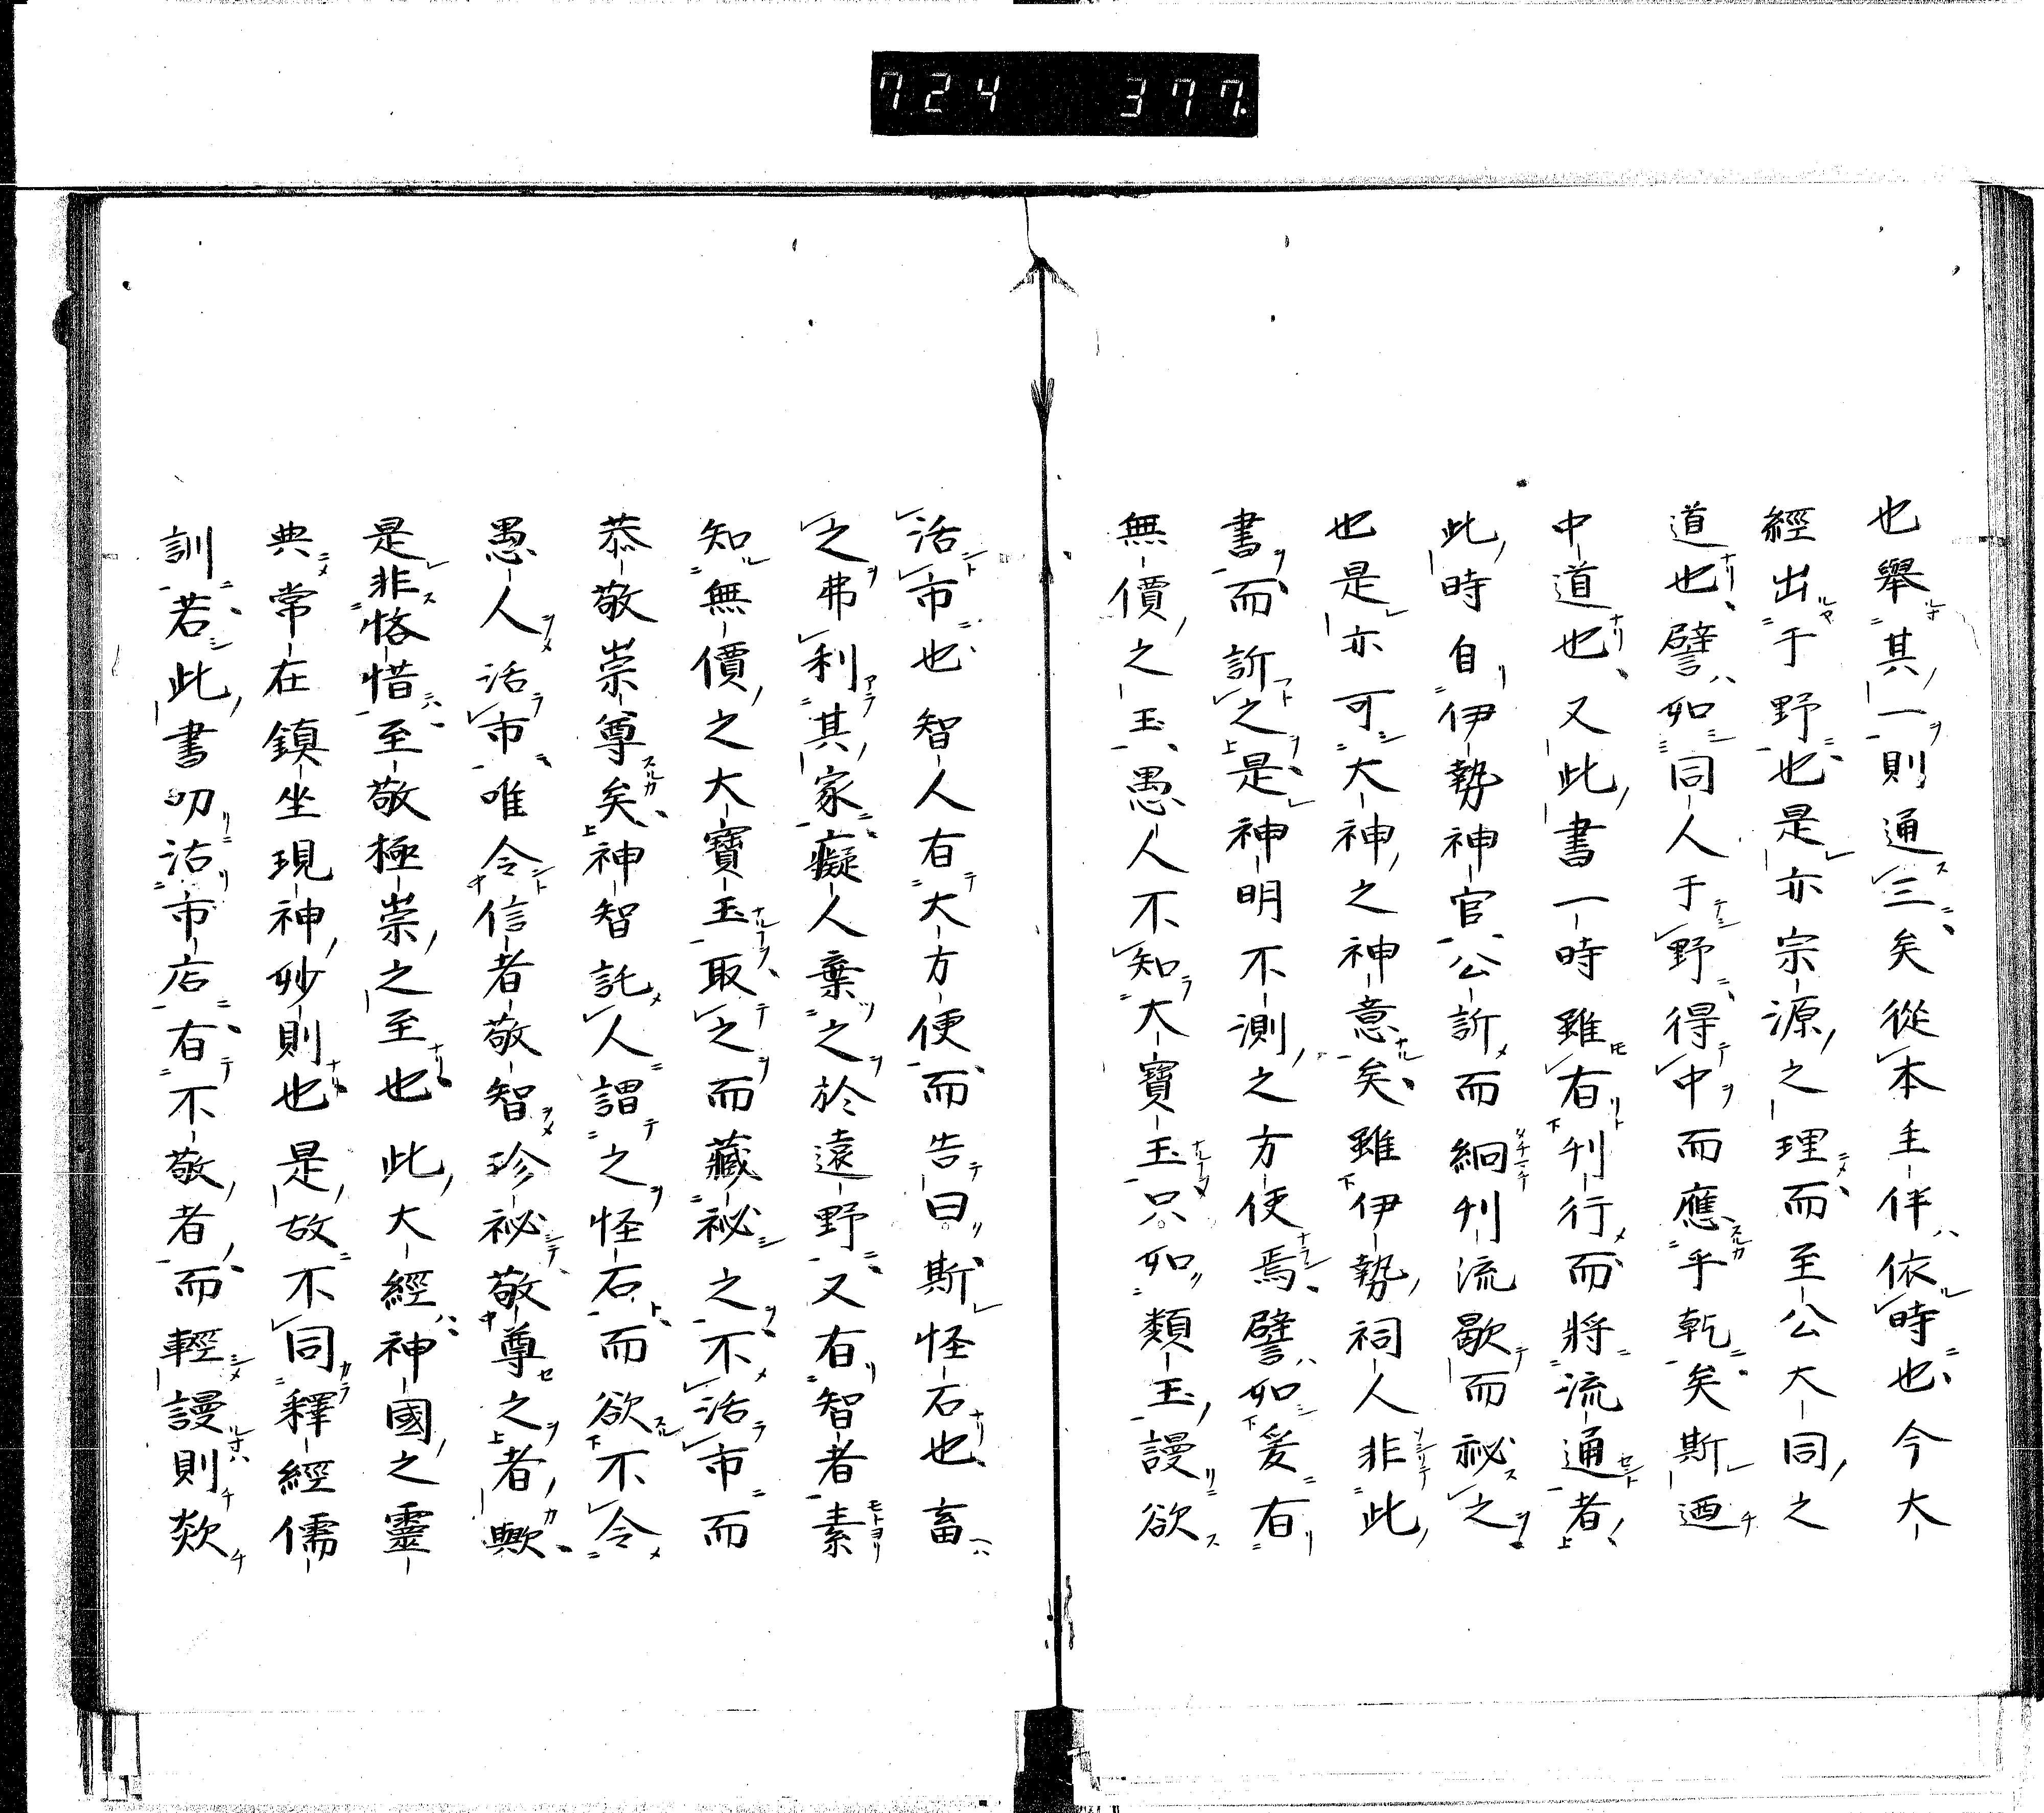 724 377
也舉其一則通三矣從本主伴依時也今大
經出于野也是亦宗源之理而至公大同之
道也譬如同人于野得中而應乎乾矣斯迺
中道也又此書一時雖有刊行而將流通者
此時自伊勢神官公訴而絅刊流歇而祕之
也是亦可大神之神意矣雖伊勢祠人非此
書而訴之是神明不測之方便焉譬如爰有
無價之玉愚人不知大寶玉只如類玉謾欲
活市也智人有大方便而告曰斯怪石也畜
之弗利其家癡人棄之於遠野又有智者素
知無價之大寶玉取之而藏祕之不活市而
恭敬崇尊矣神智託人謂之怪石而欲不令
愚人活市唯令信者敬智珍祕敬尊之者歟
是非悋惜至敬極崇之至也此大經神國之靈
典常在鎮坐現神妙則也是故不同釋經儒
訓若此書叨沽市店有不敬者而輕謾則欻